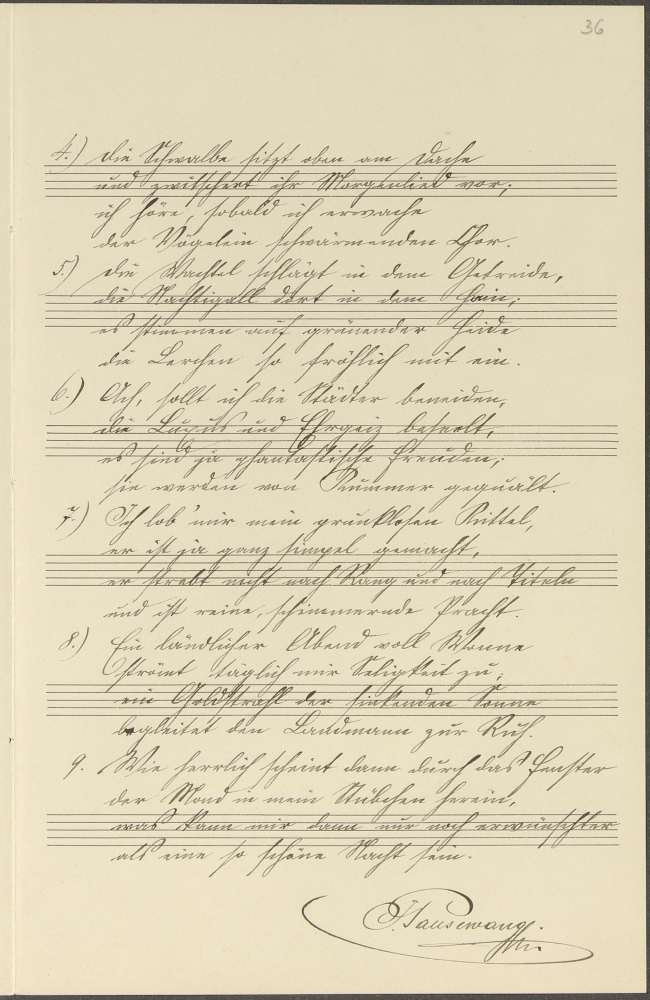 36
4.) Die Schwalbe sitzt oben am Dache
und zwitschert ihr Morgenlied vor;
ich höre, sobald ich erwache
der Vögelein schwärmenden Chor.
5.) Die Wachtel schlägt in dem Getreide,
die Nachtigall dort in dem Hain;
es stimmen auf grünender Heide
die Lerchen so fröhlich mit ein.
6.) Ach, sollt ich die Städter beneiden,
die Luxus und Ehrgeiz beseelt,
es sind ja phantastische Freuden;
sie werden von Kummer gequält.
7.) Ich lob' mir mein prunklosen Kittel,
er ist ja ganz simpel gemacht,
er strebt nicht nach Rang und nach Titeln
und ist reine, schimmernde Pracht.
8.) Ein ländlicher Abend voll Wonne
strömt täglich mir Seligkeit zu;
ein Goldstrahl der sinkenden Sonne
begleitet den Landmann zur Ruh.
9. Wie herrlich scheint dann durch das Fenster
der Mond in mein Stübchen herein,
was kann mir dann nur noch erwünschter
als eine so schöne Nacht sein.
Pausewang.